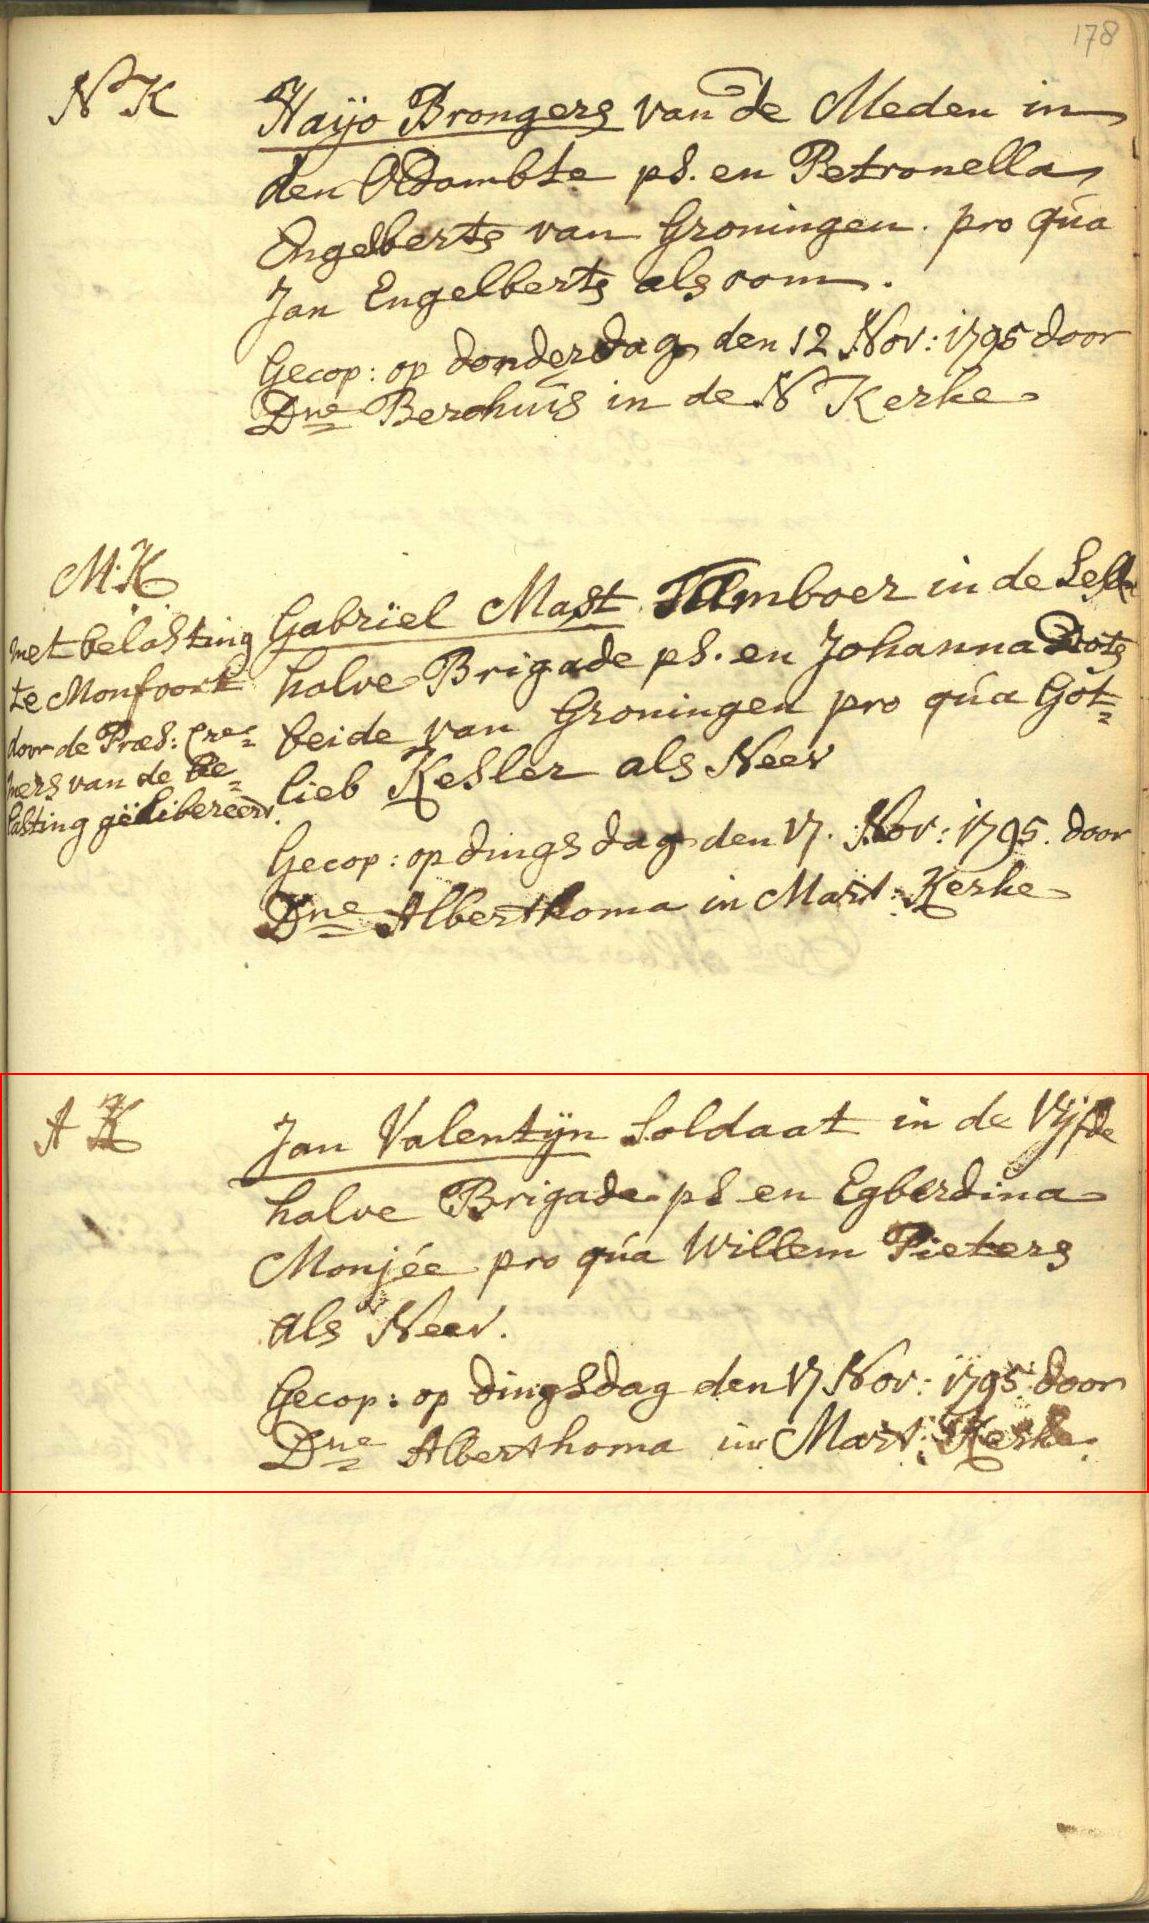 178
N K
Haijo Brongers van de Meden in
den Oldambte ps. en Petronella
Engelberts van Groningen. pro qúa
Jan Engelberts als oom.
Gecop: op donderdag den 12 Nov: 1795 door
Dne Berghuis in de N Kerke
M:K
met belasting
te Monfoort
door de Præs:
van de be=
lasting gëlibereerd.
Gabriël Mast Tamboer in de
halve Brigade ps. en Johanna
beide van Groningen pro qúa Got=
lieb Kesler als Neev
Gecop: op dingsdag den 17. Nov: 1795. door
Dne Alberthoma in Mart: Kerke
A K
Jan Valentijn Soldaat in de Vijfde
halve Brigade ps en Egberdina
Monjée pro qúa Willem Pieters
als Neev.
Gecop: op dingsdag den 17 Nov: 1795 door
Dne Alberthoma in Mart: Kerke.